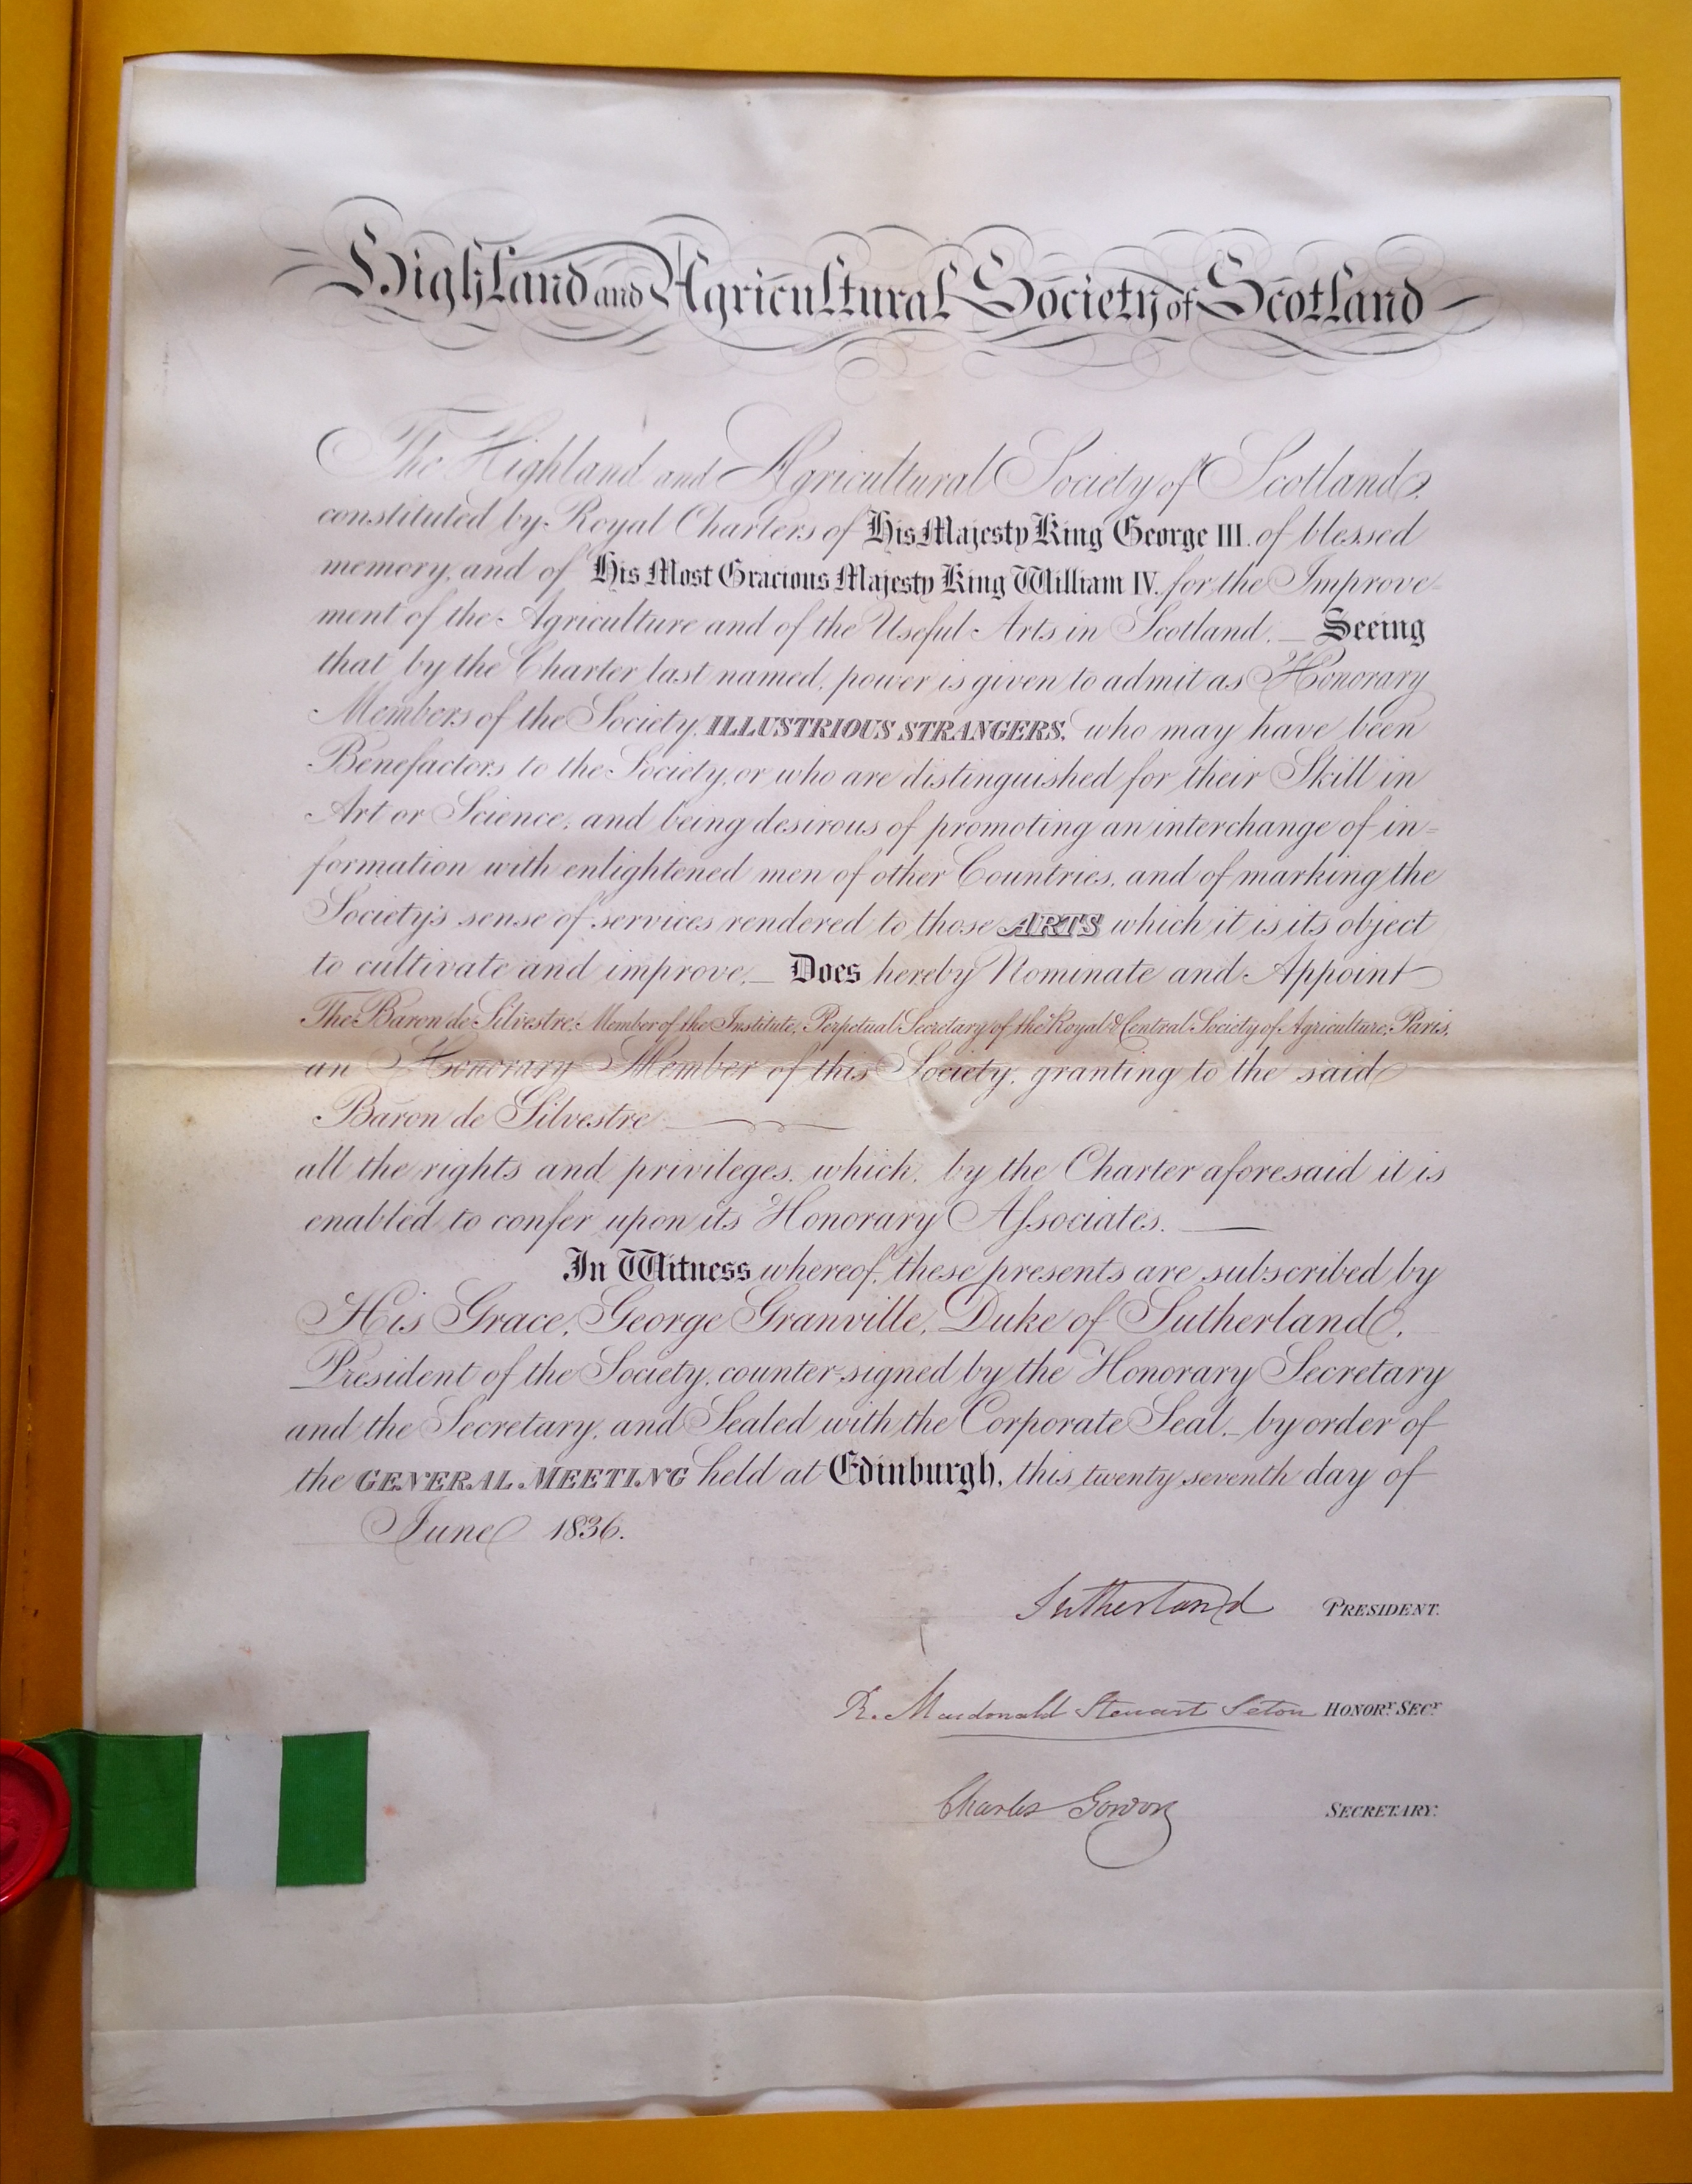 Highland and Agricultural Society of Scotland
The Highland and Agricultural Society of Scotland,
constituted by Royal Charters of His Majesty King George III. of blessed
memory, and of His Most Gracious Majesty King William IV. for the Improve-
ment of the Agriculture and of the Useful Arts in Scotland, — Seeing
that by the Charter last named, power is given to admit as Honorary
Members of the Society, ILLUSTRIOUS STRANGERS, who may have been
Benefactors to the Society, or who are distinguished for their Skill in
Art or Science; and being desirous of promoting an interchange of in=
formation with enlightened men of other Countries, and of marking the
Society's sense of services rendered to those ARTS which it is its object
to cultivate and improve, — Does hereby Nominate and Appoint
The Baron de Silvestre, Member of the Institute, Perpetual Secretary of the Royal & Central Society of Agriculture, Paris,
an Honorary Member of this Society, granting to the said
Baron de Silvestre
all the rights and privileges, which, by the Charter aforesaid it is
enabled to confer upon its Honorary Associates. —
In Witness whereof, these presents are subscribed by
His Grace, George Granville, Duke of Sutherland,
President of the Society, counter-signed by the Honorary Secretary
and the Secretary, and Sealed with the Corporate Seal, — by order of
the GENERAL MEETING held at Edinburgh, this twenty seventh day of
June 1836.
Sutherland PRESIDENT.
R. Macdonald Steuart Seton HONORY. SECY.
Charles Gordon SECRETARY.